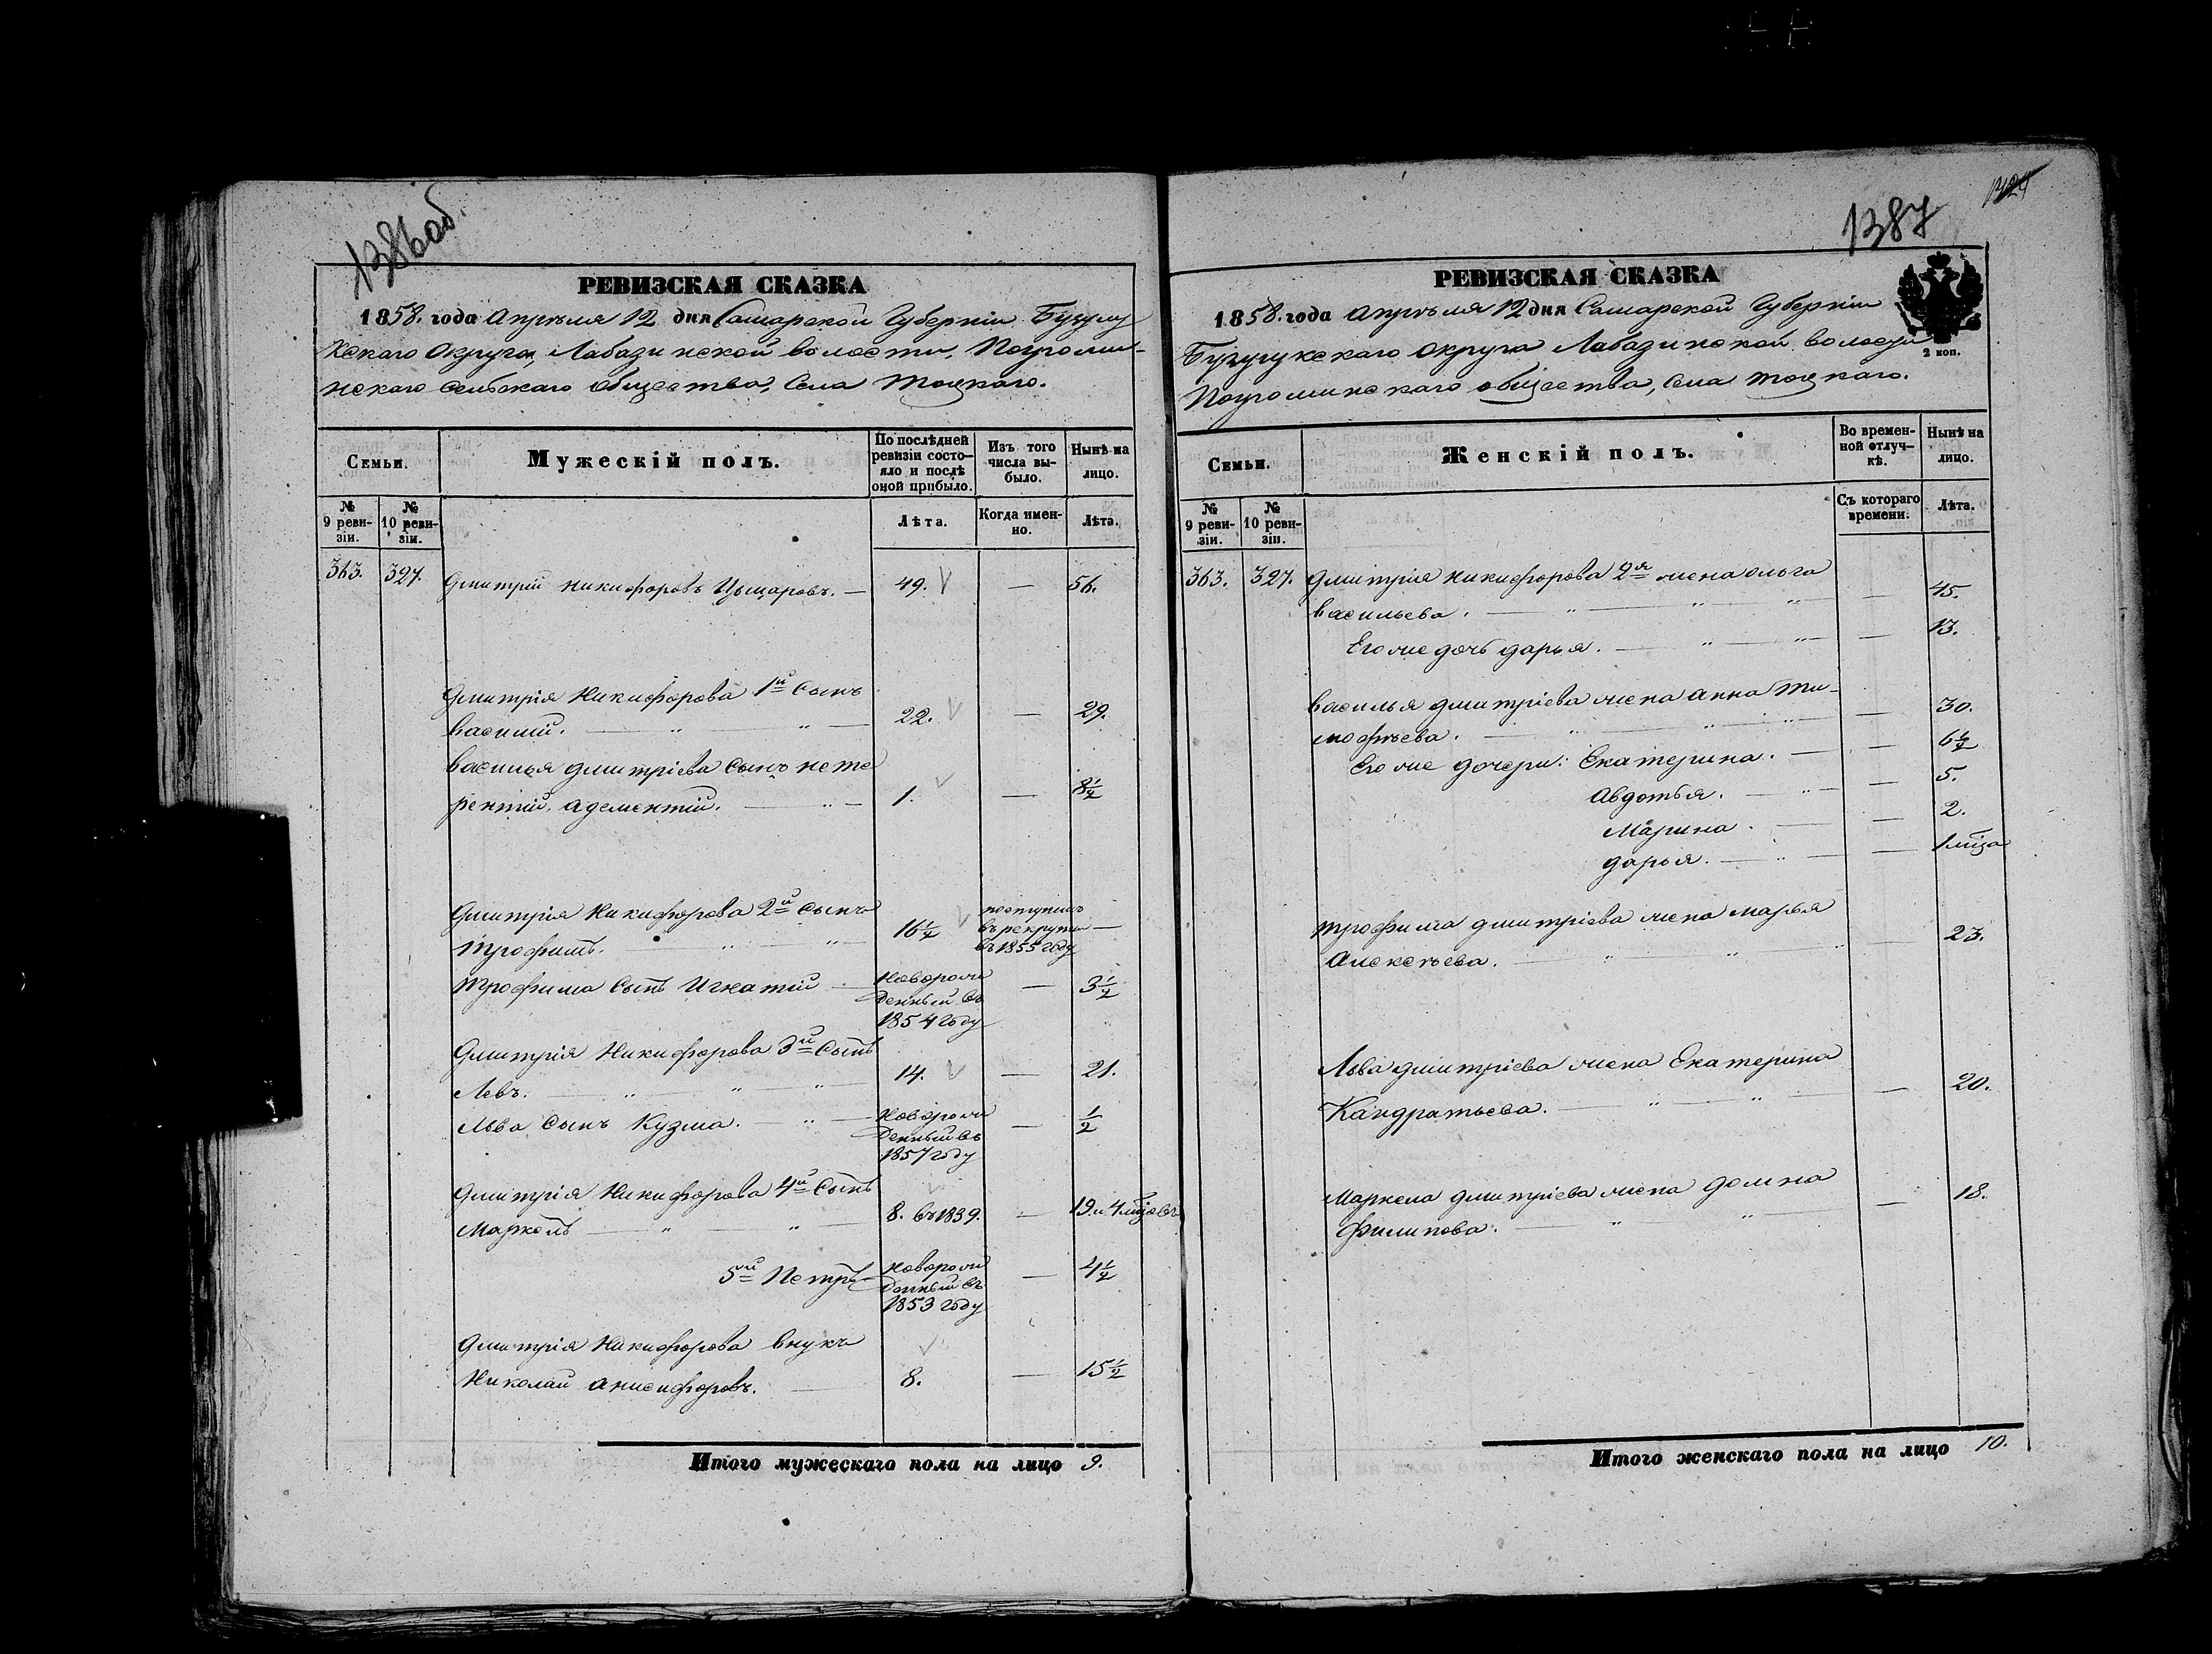 1386 об.
РЕВИЗСКАЯ СКАЗКА
1858. года Апрѣля 12 дня Самарской Губерніи Бузулу
кскаго Округа, Лабазинской волости, Погромин-
нскаго сельскаго общества, Села Тоцкаго.
Семьи.
Мужескій полъ.
По послѣдней ревизіи состояло и послѣ оной прибыло.
Изъ того числа выбыло.
Нынѣ на лицо.
№ 9 ревизіи.
№ 10 ревизіи.
Лѣта.
Когда именно.
Лѣта.
363. 327. Дмитрій Никифоровъ 49. — 56.
Дмитрія Никифорова 1й Сынъ
василій. 22. — 29.
василья дмитріева Сынъ не те
рентій, а дементій. 1. — 8½
Дмитрія Никифорова 2й Сынъ
трофимъ. 16½ поступилъ въ рекруты въ 1855 году —
трофима Сынъ Игнатій Новорожденный въ 1854 году — 3½
Дмитрія Никифорова 3й Сынъ
Левъ. 14. — 21.
Льва Сынъ Кузма. Новорожденный въ 1857 году — ½
Дмитрія Никифорова 4й Сынъ
Маркелъ 8. въ 1839. — 19. и 4 мѣсяцовъ
5й Петръ Новорожденный въ 1853 году — 4½
Дмитрія Никифорова внукъ
Николай анисифоровъ. 8. — 15½
Итого мужескаго пола на лицо 9.
1387
РЕВИЗСКАЯ СКАЗКА
2 коп.
1858. года апрѣля 12 дня Самарской Губерніи
Бузулукскаго округа Лабазинской волости
Погроминскаго общества, Села тоцкаго.
Семьи.
Женскій полъ.
Во временной отлучкѣ.
Нынѣ на лицо.
№ 9 ревизіи.
№ 10 ревизіи.
Съ котораго времени.
Лѣта.
363. 327. Дмитрія Никифорова 2я жена ольга
васильева. — 45.
Его же дочь дарья. — 13.
василья дмитріева жена анна ти-
мофѣева. — 30.
Его же дочери: Екатерина. — 6½
авдотья. — 5.
Марина. — 2.
дарья. — 1 мѣца
трофима дмитріева жена марья
Алексѣева. — 23.
Льва дмитріева жена Екатерина
Кандратьева. — 20.
Маркела дмитріева жена домна
филипова. — 18.
Итого женскаго пола на лицо 10.